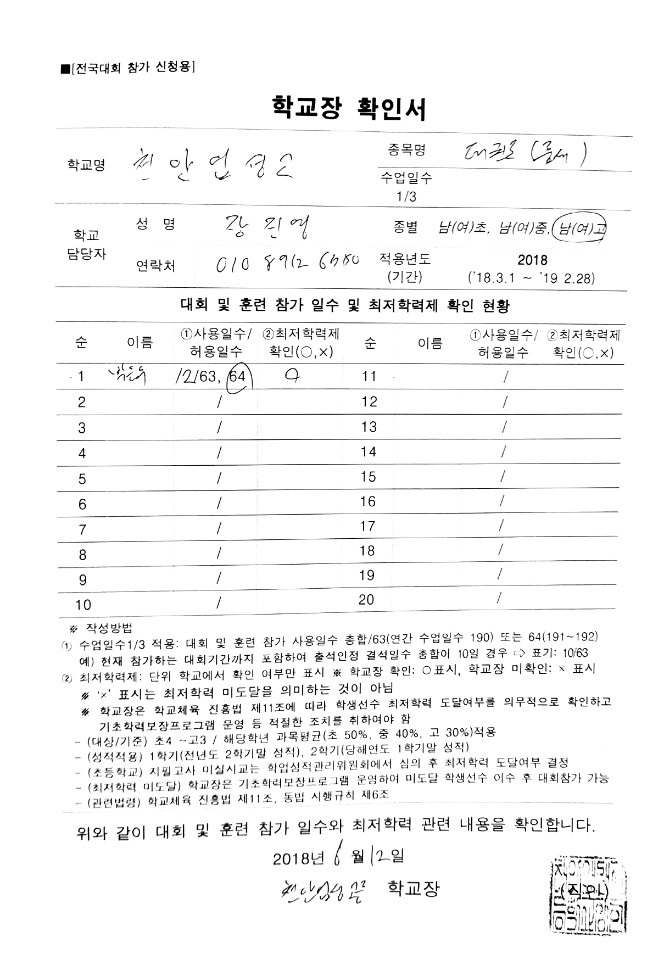 ■[전국대회 참가 신청용]
학교장 확인서
학교명 천안업성고 종목명 태권도(품새)
수업일수 1/3
학교 담당자 성 명 장진영 종별 남(여)초, 남(여)중, 남(여)고
연락처 010 8912 6580 적용년도 (기간) 2018 ('18.3.1 ~ '19 2.28)
대회 및 훈련 참가 일수 및 최저학력제 확인 현황
순 이름 ①사용일수/허용일수 ②최저학력제 확인(○,×) 순 이름 ①사용일수/허용일수 ②최저학력제 확인(○,×)
1 12/63, 64 ○ 11 /
2 / 12 /
3 / 13 /
4 / 14 /
5 / 15 /
6 / 16 /
7 / 17 /
8 / 18 /
9 / 19 /
10 / 20 /
※ 작성방법
① 수업일수1/3 적용: 대회 및 훈련 참가 사용일수 총합/63(연간 수업일수 190) 또는 64(191~192)
예) 현재 참가하는 대회기간까지 포함하여 출석인정 결석일수 총합이 10일 경우 ⇨ 표기: 10/63
② 최저학력제: 단위 학교에서 확인 여부만 표시 ※ 학교장 확인: ○표시, 학교장 미확인: × 표시
※ '×' 표시는 최저학력 미도달을 의미하는 것이 아님
※ 학교장은 학교체육 진흥법 제11조에 따라 학생선수 최저학력 도달여부를 의무적으로 확인하고
기초학력보장프로그램 운영 등 적절한 조치를 취하여야 함
- (대상/기준) 초4 ~고3 / 해당학년 과목평균(초 50%, 중 40%, 고 30%)적용
- (성적적용) 1학기(전년도 2학기말 성적), 2학기(당해연도 1학기말 성적)
- (초등학교) 지필고사 미실시교는 학업성적관리위원회에서 심의 후 최저학력 도달여부 결정
- (최저학력 미도달) 학교장은 기초학력보장프로그램 운영하여 미도달 학생선수 이수 후 대회참가 가능
- (관련법령) 학교체육 진흥법 제11조, 동법 시행규칙 제6조
위와 같이 대회 및 훈련 참가 일수와 최저학력 관련 내용을 확인합니다.
2018년 6월 12일
천안업성고 학교장
(직인)